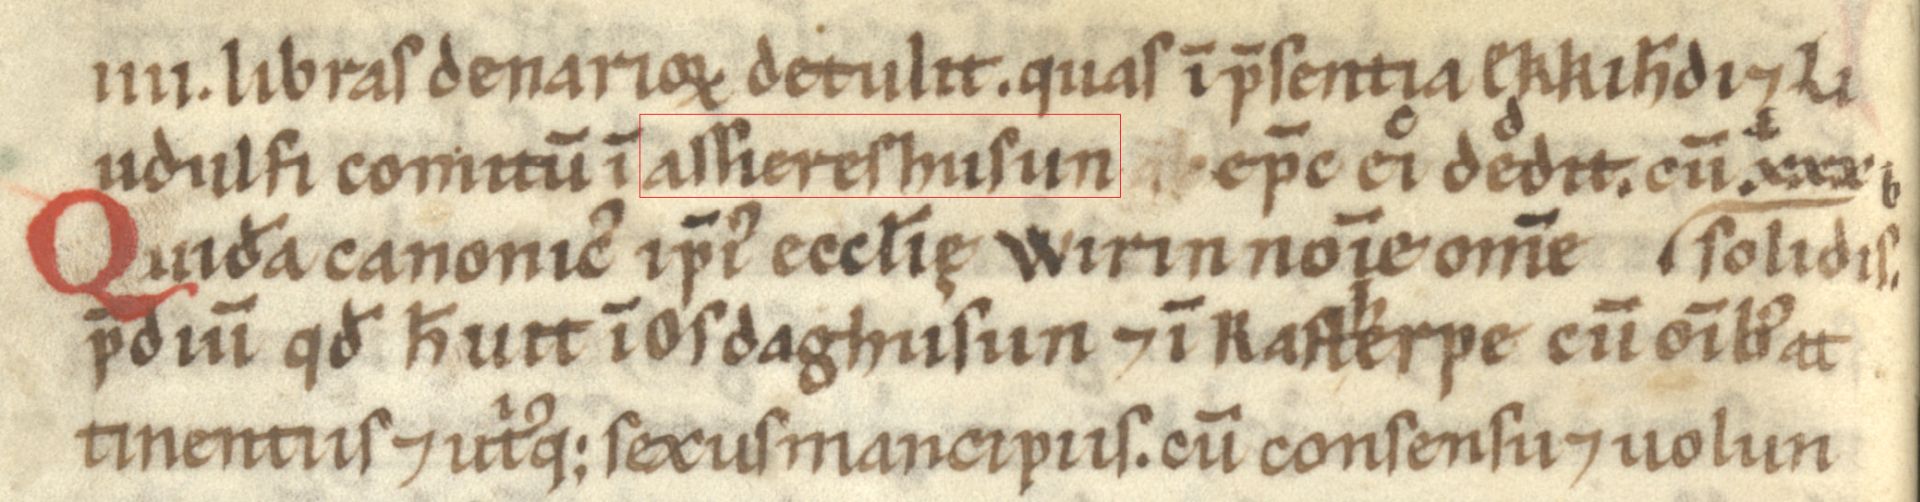 iiii. libras denarioꝝ detulit. quas ī p̄sentia ekkih̄di ⁊ li
udulfi comitū ī assiereshusun ep̄c ei dedit. cū .xxx
Quidā canonic᷒ ip̄i᷒ eccl̄ię Wirin noīe om̄e solidis.
p̄diū qd̄ h̄uit ī Osdaghusun ⁊ ī Rasterpe cū oīb᷒ at
tinentiis ⁊ utͥ᷒q; sexus mancipiis. cū consensu ⁊ uolun